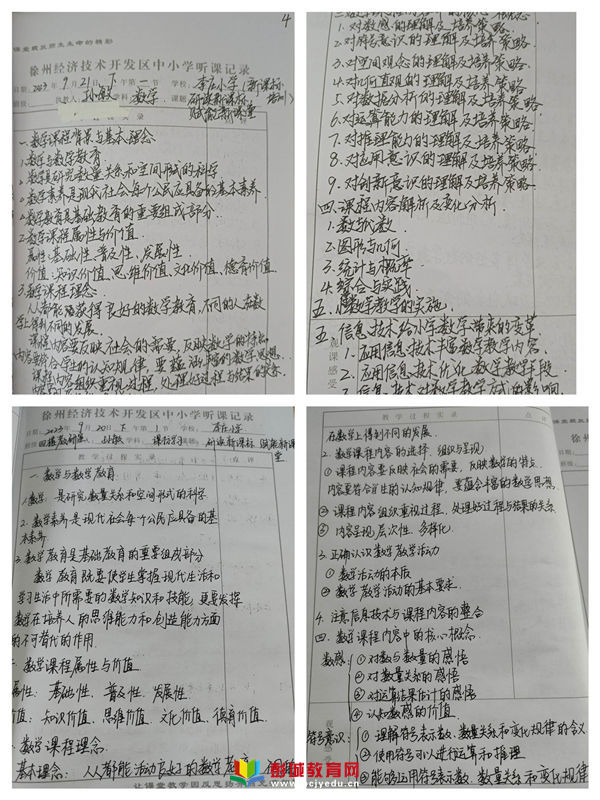 4
课堂教反思生生命的精彩
徐州经济技术开发区中小学听课记录
日期：2023年9月21日下第一节 学校：李庄小学（新课标培训）
执教人 孙敏 学科 数学 课题：研读新课标，赋能新课堂
一、数学课程背景与基本理念
1.数学与数学教育
数学是研究数量关系和空间形式的科学
数学素养是现代社会每个公民应具备的基本素养
数学教育是基础教育的重要组成部分
2.数学课程属性与价值
属性：基础性、普及性、发展性。
价值：知识价值、思维价值、文化价值、德育价值
3.数学课程理念
人人都能获得良好的数学教育，不同的人在数
学上得到不同的发展。
课程内容要反映社会的需要，反映数学的特点，
内容要符合学生的认知规律，要蕴涵丰富的数学思想。
课程内容组织重视过程，处理好过程与结果的关系
1.对数感的理解及培养策略
2.对符号意识的理解及培养策略.
3.对空间观念的理解及培养策略
4.对几何直观的理解及培养策略.
5.对数据分析的理解及培养策略
6.对运算能力的理解及培养策略
7.对推理能力的理解及培养策略
8.对应用意识的理解及培养策略
9.对创新意识的理解及培养策略
四.课程内容解析及变化分析.
1.数与代数
2.图形与几何
3.统计与概率
4.综合与实践
五.小学数学教学的实施
五.信息技术给小学数学带来的变革
1.应用信息技术丰富数学教学内容.
2.应用信息技术优化数学教学手段
3.信息技术对数学教学方式的影响
观课感受
徐州经济技术开发区中小学听课记录
日期：2023年9月20日下第1节 学校：李庄小学
孙敏 研读新课标 赋能新课堂
教学过程实录 点评
一.数学与数学教育
1.数学：是研究数量关系和空间形式的科学
2.数学素养是现代社会每个公民应具备的基
本素养.
3.数学教育是基础教育的重要组成部分
数学教育既要使学生掌握现代生活和
学习生活中所需要的数学知识和技能，更要发挥
数学在培养人的思维能力和创造能力方面
的不可替代的作用.
数学课程属性与价值
属性：基础性、普及性、发展性
价值：知识价值、思维价值、文化价值、德育价值.
数学课程理念
基本理念：人人都能
教学过程实录 点评
在数学上得到不同的发展.
2.数学课程内容的选择、组织与呈现
①课程内容要反映社会的需要，反映数学的特点
内容要符合学生的认知规律，要蕴含丰富的数学思想
②课程内容组织重视过程，处理好过程与结果的关系
③内容呈现层次性、多样化
3.正确认识数学教学活动
①数学活动的本质
②数学活动的基本要求.
4.注意信息技术与课程内容的整合
四.数学课程内容中的核心概念.
数感：①对数与数量的感悟
②对数量关系的感悟
③对运算结果估计的感悟
④认知数感的价值.
符号意识：①理解符号表示数、数量关系和变化规律的含义
②使用符号可以进行运算和推理
③能够运用符号表示数、数量关系和变化规律
彭城教育网
www.pcjyedu.cn